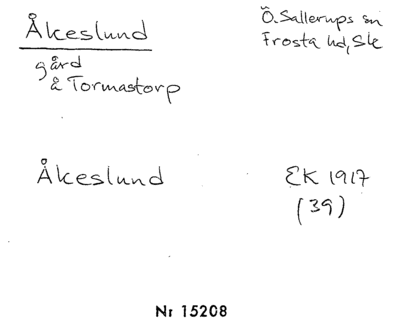 Åkeslund
Ö. Sallerups sn
Frosta hd, Ske
gård
å Tormastorp
Åkeslund
EK 1917
(39)
Nr 15208